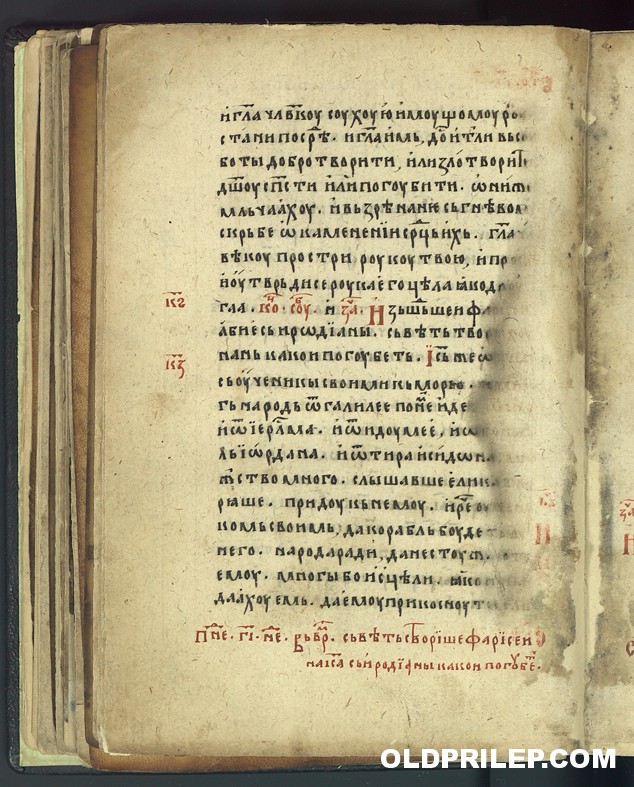 и гла члв҃коу соухоую имоущомоу ро
стани посрѣ҃. и гла имь, до҃ итли вьс
боты добро творити, или зло твори҃т
дш҃оу сп҃сти или погоубити. ѡни же
мльчаахоу. и вьзрѣ на ние сь гнѣвом
скрьбе ѡ каменени ср҃ць ихь. гл҃а
вѣкоу простри роукоу твою, и про
и оутврьди се роука его цѣла ꙗко д
гла. и за҃. Изьшьшеи фа
абие сь иродїаны. сьвѣть тво
нань како и погоубеть. Іс҃ь же ѿ
сь оученикы своими кь морю. и
гь народь ѿ галилее по не҃ иде
и ѿ іерл҃ма. и ѿ идоумее, и ѡ
ль іѡрдана. и ѿ тира и сидѡна
ж҃ство много. слышавше елика
рꙗше. придоу кь немоу. и ре҃ оу
комь своимь, да корабль боуде
него. народа ради, да не стоуж
емоу. многы бо исцѣли. ꙗко
даахоу емь. да емоу прикосноут
кг҃
кз҃
пн҃е. гі҃. не҃. сьвѣть створише фарисеи
на іс҃а сь иродїаны како и погоубе҃.
OLDPRILEP.COM